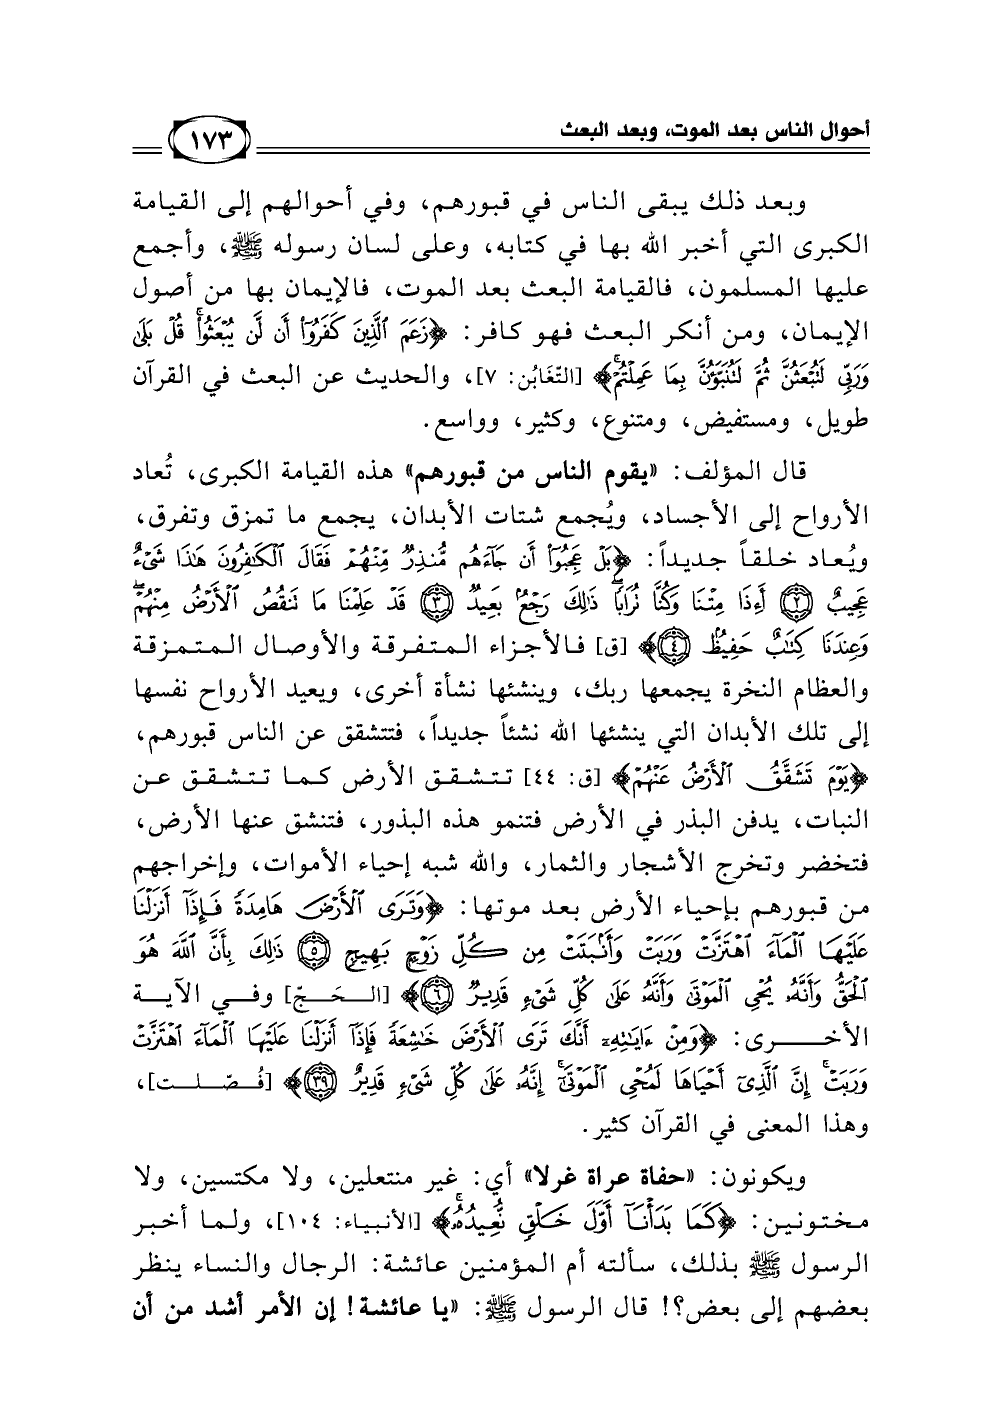 أحوال الناس بعد الموت، وبعد البعث
١٧٣
وبعد ذلك يبقى الناس في قبورهم، وفي أحوالهم إلى القيامة
الكبرى التي أخبر الله بها في كتابه، وعلى لسان رسوله ﷺ، وأجمع
عليها المسلمون، فالقيامة البعث بعد الموت، فالإيمان بها من أصول
الإيمان، ومن أنكر البعث فهو كافر: ﴿زَعَمَ ٱلَّذِينَ كَفَرُوٓا۟ أَن لَّن يُبْعَثُوا۟ۚ قُلْ بَلَىٰ
وَرَبِّى لَتُبْعَثُنَّ ثُمَّ لَتُنَبَّؤُنَّ بِمَا عَمِلْتُمْۚ﴾ [التّغَابُن: ٧]، والحديث عن البعث في القرآن
طويل، ومستفيض، ومتنوع، وكثير، وواسع.
قال المؤلف: «يقوم الناس من قبورهم» هذه القيامة الكبرى، تُعاد
الأرواح إلى الأجساد، ويُجمع شتات الأبدان، يجمع ما تمزق وتفرق،
ويُعاد خلقاً جديداً: ﴿بَلْ عَجِبُوٓا۟ أَن جَآءَهُم مُّنذِرٌ مِّنْهُمْ فَقَالَ ٱلْكَٰفِرُونَ هَٰذَا شَىْءٌ
عَجِيبٌ ٢ أَءِذَا مِتْنَا وَكُنَّا تُرَابًاۖ ذَٰلِكَ رَجْعٌۢ بَعِيدٌ ٣ قَدْ عَلِمْنَا مَا تَنقُصُ ٱلْأَرْضُ مِنْهُمْۖ
وَعِندَنَا كِتَٰبٌ حَفِيظٌۢ ٤﴾ [ق] فالأجزاء المتفرقة والأوصال المتمزقة
والعظام النخرة يجمعها ربك، وينشئها نشأة أخرى، ويعيد الأرواح نفسها
إلى تلك الأبدان التي ينشئها الله نشئاً جديداً، فتتشقق عن الناس قبورهم،
﴿يَوْمَ تَشَقَّقُ ٱلْأَرْضُ عَنْهُمْ﴾ [ق: ٤٤] تتشقق الأرض كما تتشقق عن
النبات، يدفن البذر في الأرض فتنمو هذه البذور، فتنشق عنها الأرض،
فتخضر وتخرج الأشجار والثمار، والله شبه إحياء الأموات، وإخراجهم
من قبورهم بإحياء الأرض بعد موتها: ﴿وَتَرَى ٱلْأَرْضَ هَامِدَةً فَإِذَآ أَنزَلْنَا
عَلَيْهَا ٱلْمَآءَ ٱهْتَزَّتْ وَرَبَتْ وَأَنۢبَتَتْ مِن كُلِّ زَوْجٍۭ بَهِيجٍ ٥ ذَٰلِكَ بِأَنَّ ٱللَّهَ هُوَ
ٱلْحَقُّ وَأَنَّهُۥ يُحْىِ ٱلْمَوْتَىٰ وَأَنَّهُۥ عَلَىٰ كُلِّ شَىْءٍ قَدِيرٌ ٦﴾ [الحَجّ] وفي الآية
الأخرى: ﴿وَمِنْ ءَايَٰتِهِۦٓ أَنَّكَ تَرَى ٱلْأَرْضَ خَٰشِعَةً فَإِذَآ أَنزَلْنَا عَلَيْهَا ٱلْمَآءَ ٱهْتَزَّتْ
وَرَبَتْۚ إِنَّ ٱلَّذِىٓ أَحْيَاهَا لَمُحْىِ ٱلْمَوْتَىٰٓۚ إِنَّهُۥ عَلَىٰ كُلِّ شَىْءٍ قَدِيرٌ ٣٩﴾ [فُصّلت]،
وهذا المعنى في القرآن كثير.
ويكونون: «حفاة عراة غرلا» أي: غير منتعلين، ولا مكتسين، ولا
مختونين: ﴿كَمَا بَدَأْنَآ أَوَّلَ خَلْقٍ نُّعِيدُهُۥۚ﴾ [الأنبياء: ١٠٤]، ولما أخبر
الرسول ﷺ بذلك، سألته أم المؤمنين عائشة: الرجال والنساء ينظر
بعضهم إلى بعض؟! قال الرسول ﷺ: «يا عائشة! إن الأمر أشد من أن